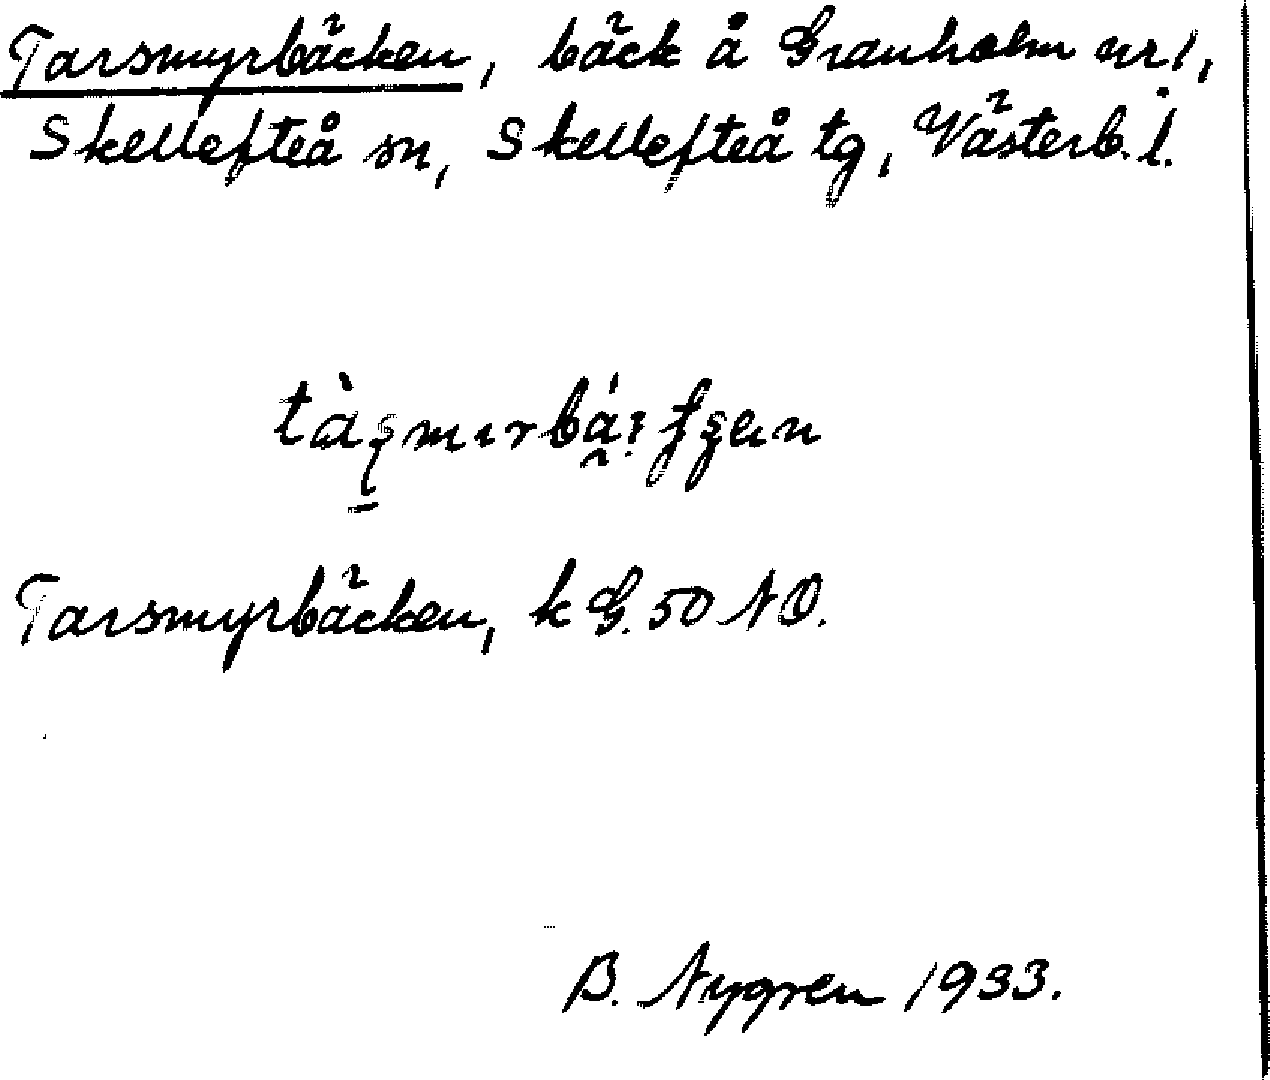 Tarsmyrbäcken, bäck å Granholm nr 1,
Skellefteå sn, Skellefteå tg, Västerb. l.
Tarsmyrbäcken, k G. 50 NO.
B. Nygren 1933.